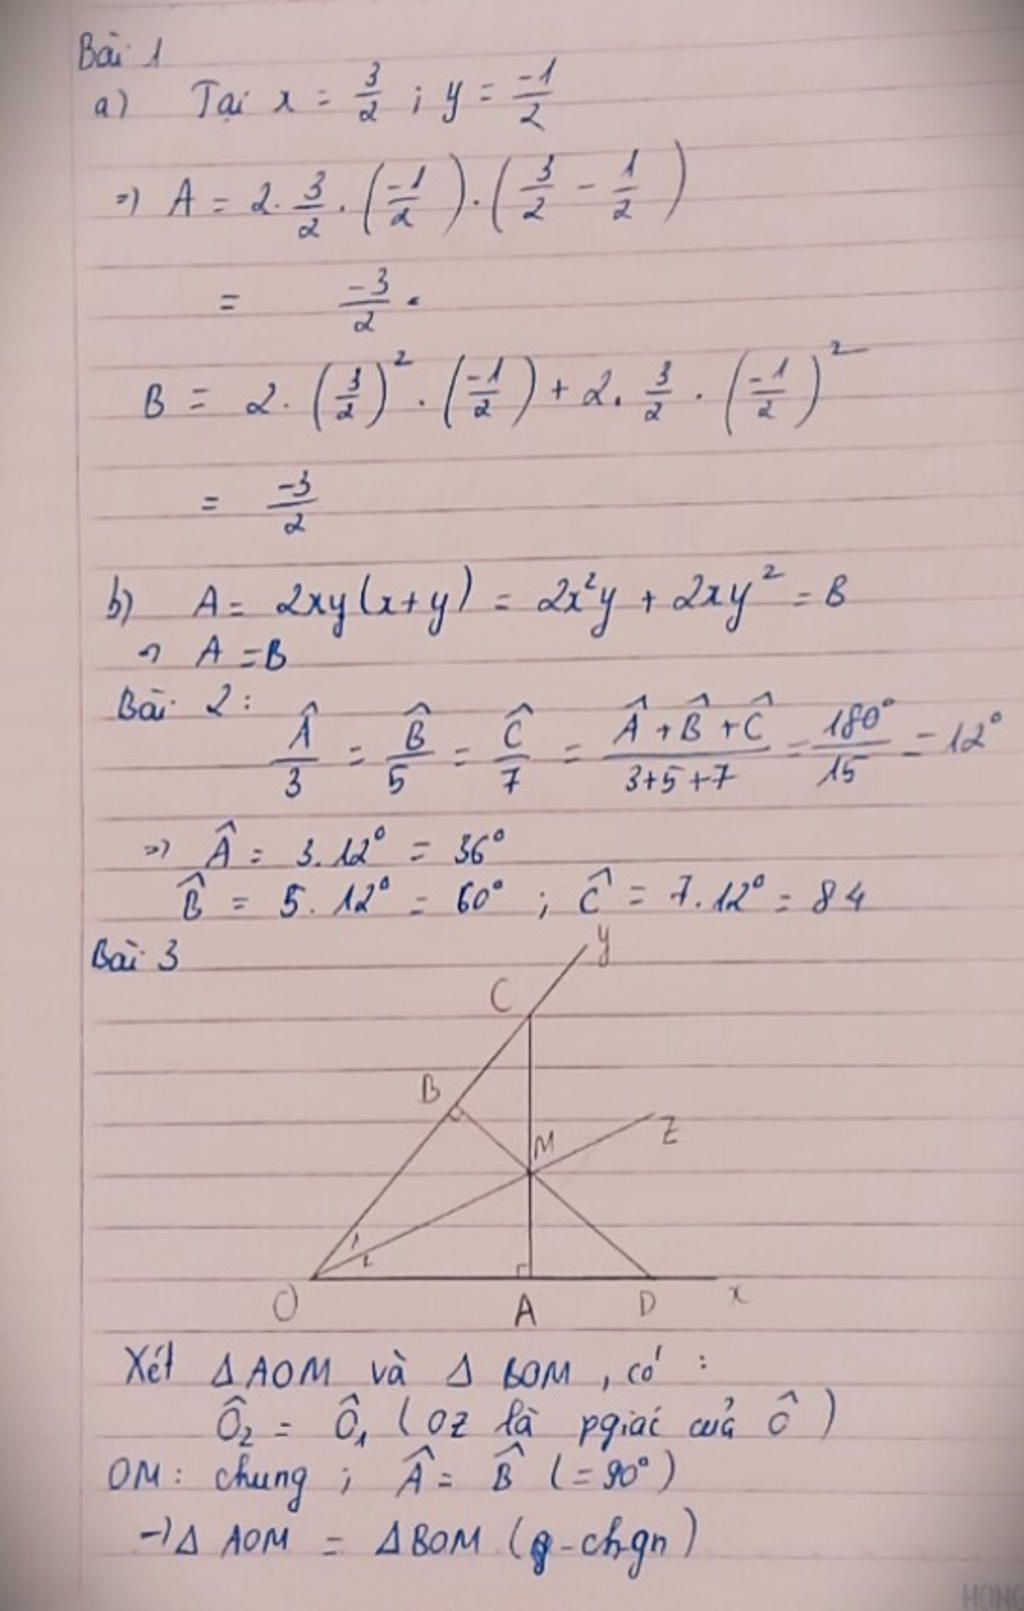 Bài 1
a) Tại x = 3/2 ; y = -1/2
=> A = 2. 3/2 . (-1/2) . (3/2 - 1/2)
= -3/2 .
B = 2. (3/2)² . (-1/2) + 2. 3/2 . (-1/2)²
= -3/2
b) A = 2xy(x+y) = 2x²y + 2xy² = B
=> A = B
Bài 2:
Â/3 = B̂/5 = Ĉ/7 = (Â + B̂ + Ĉ)/(3+5+7) = 180°/15 = 12°
=> Â = 3.12° = 36°
B̂ = 5.12° = 60° ; Ĉ = 7.12° = 84
Bài 3
y
C
B
M
z
1
2
O
A
D
x
Xét Δ AOM và Δ BOM, có :
Ô₂ = Ô₁ (OZ là pgiác của Ô)
OM: chung ; Â = B̂ (= 90°)
=> Δ AOM = Δ BOM (g-chgn)
HONG